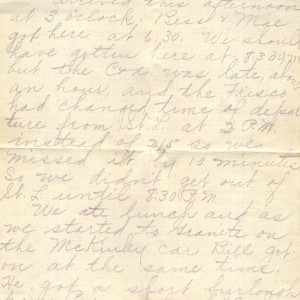 arrived this afternoon
at 3 o'clock. Bess & Mae
got here at 6:30. We should
have gotten here at 8:30 AM
but the C&A was late, about
an hour, and the Frisco
had changed time of depar
ture from St. L. at 2 P.M.
instead of 2:15 so we
missed it by 10 minutes
So we didn't get out of
St. L. until 8:30 P.M.
We ate lunch and as
we started to Granite on
the McKinley car Bill got
on at the same time.
He got a short furlough